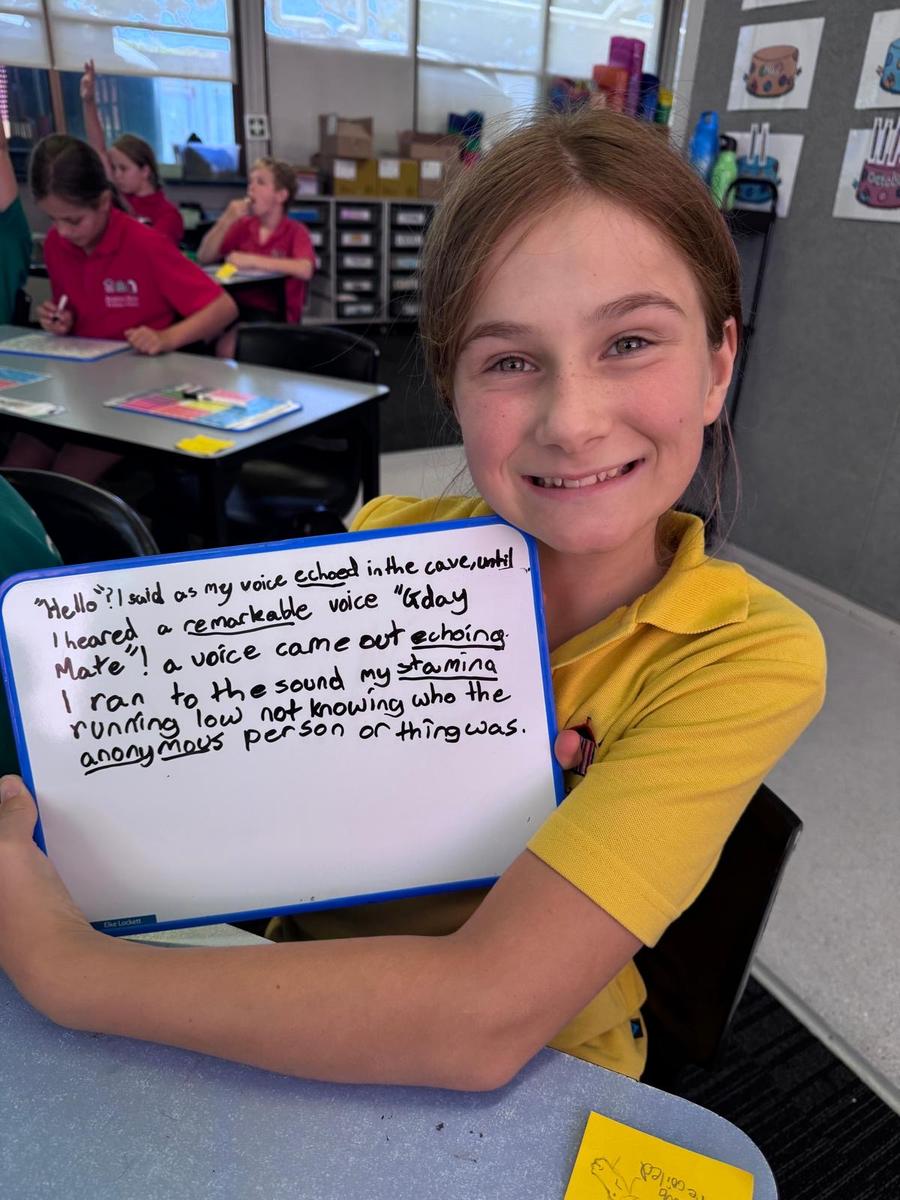 "Hello"? I said as my voice echoed in the cave, until
I heared a remarkable voice "Gday
Mate"! a voice came out echoing.
I ran to the sound my stamina
running low not knowing who the
anonymous person or thing was.
Elke Lockett